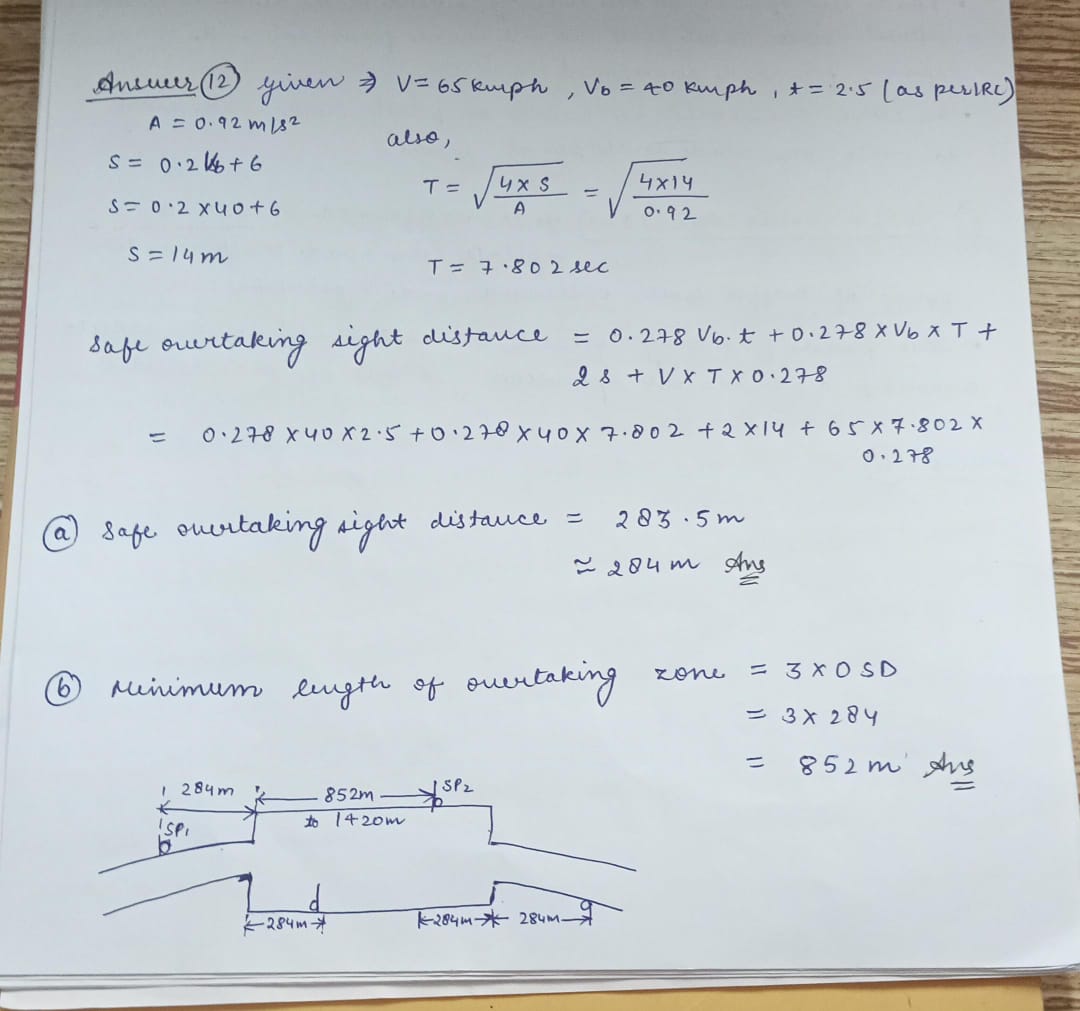 Answer (12) given ⇒ V = 65 kmph, Vb = 40 kmph, t = 2.5 (as per IRC)
A = 0.92 m/s²
also,
S = 0.2 Vb + 6
T = √(4 × S / A) = √(4 × 14 / 0.92)
S = 0.2 × 40 + 6
S = 14 m
T = 7.802 sec
Safe overtaking sight distance = 0.278 Vb. t + 0.278 × Vb × T +
2s + V × T × 0.278
= 0.278 × 40 × 2.5 + 0.278 × 40 × 7.802 + 2 × 14 + 65 × 7.802 ×
0.278
(a) Safe overtaking sight distance = 283.5 m
≈ 284 m Ans
(b) Minimum length of overtaking zone = 3 × OSD
= 3 × 284
= 852 m Ans
284m
852m
SP2
to 1420m
SP1
284m
284m
284m